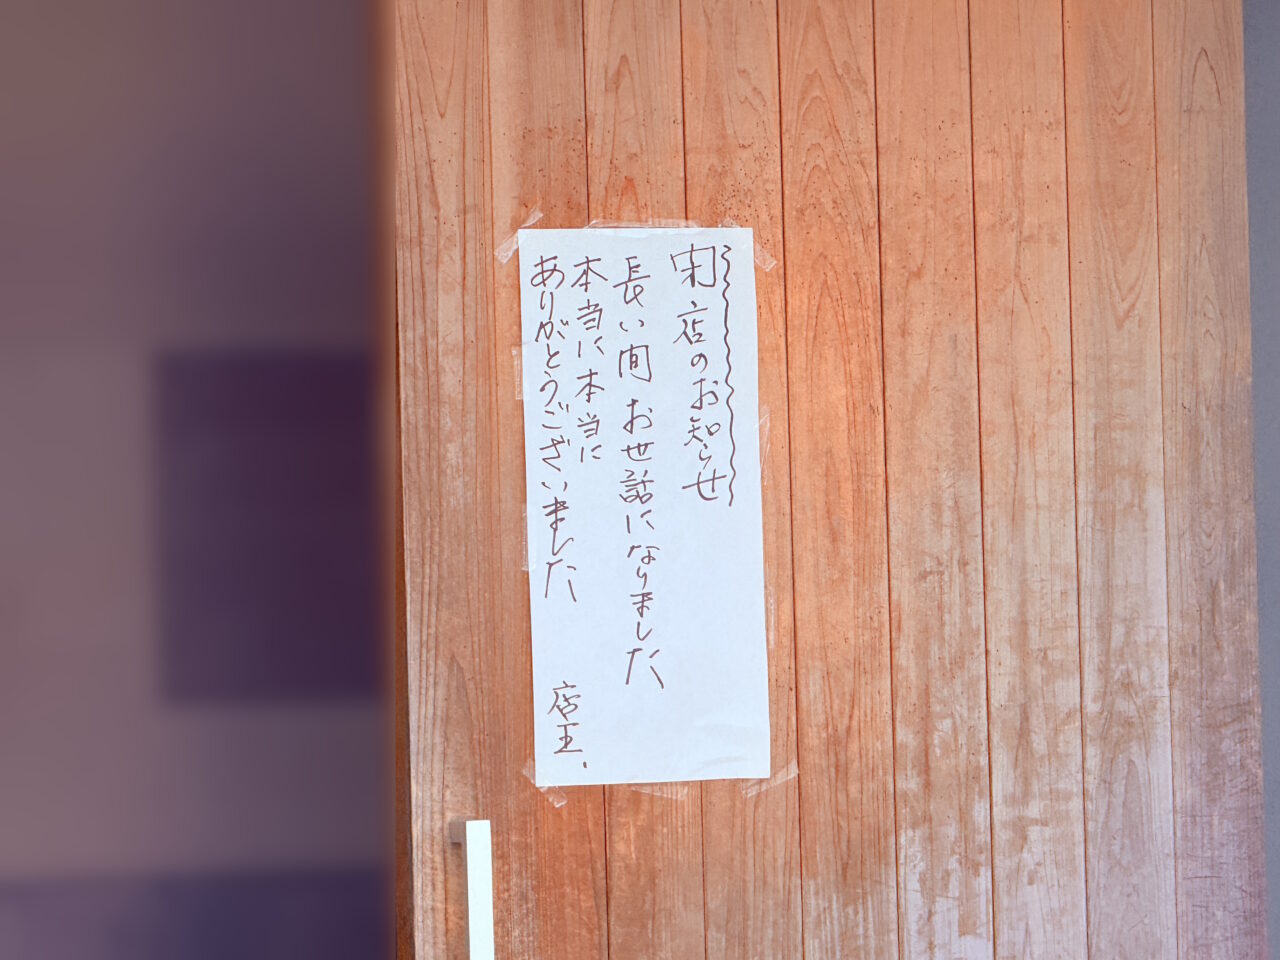 閉店のお知らせ
長い間お世話になりました
本当に本当に
ありがとうございました
店主